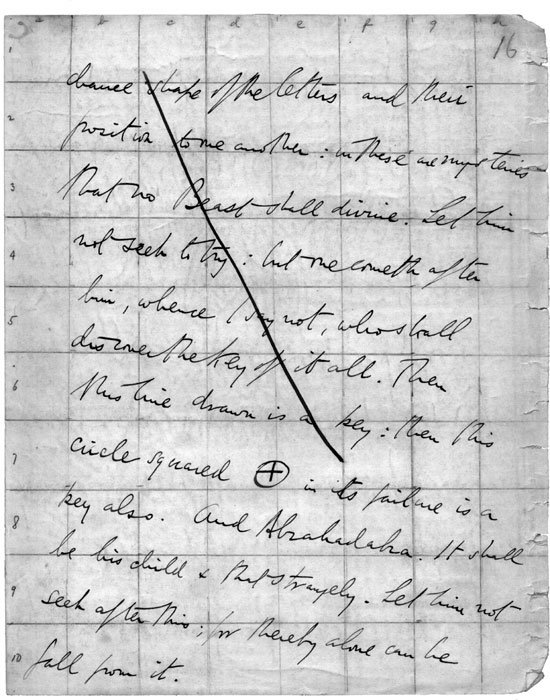 a b c d e f g h
16
1
chance shape of the letters and their
2
position to one another : in these are mysteries
3
that no Beast shall divine. Let him
4
not seek to try : but one cometh after
5
him, whence I say not, who shall
discover the key of it all. Then
6
this line drawn is a key : then this
7
circle squared in its failure is a
8
key also. And Abrahadabra. It shall
be his child & that strangely. Let him not
9
seek after this ; for thereby alone can he
10
fall from it.